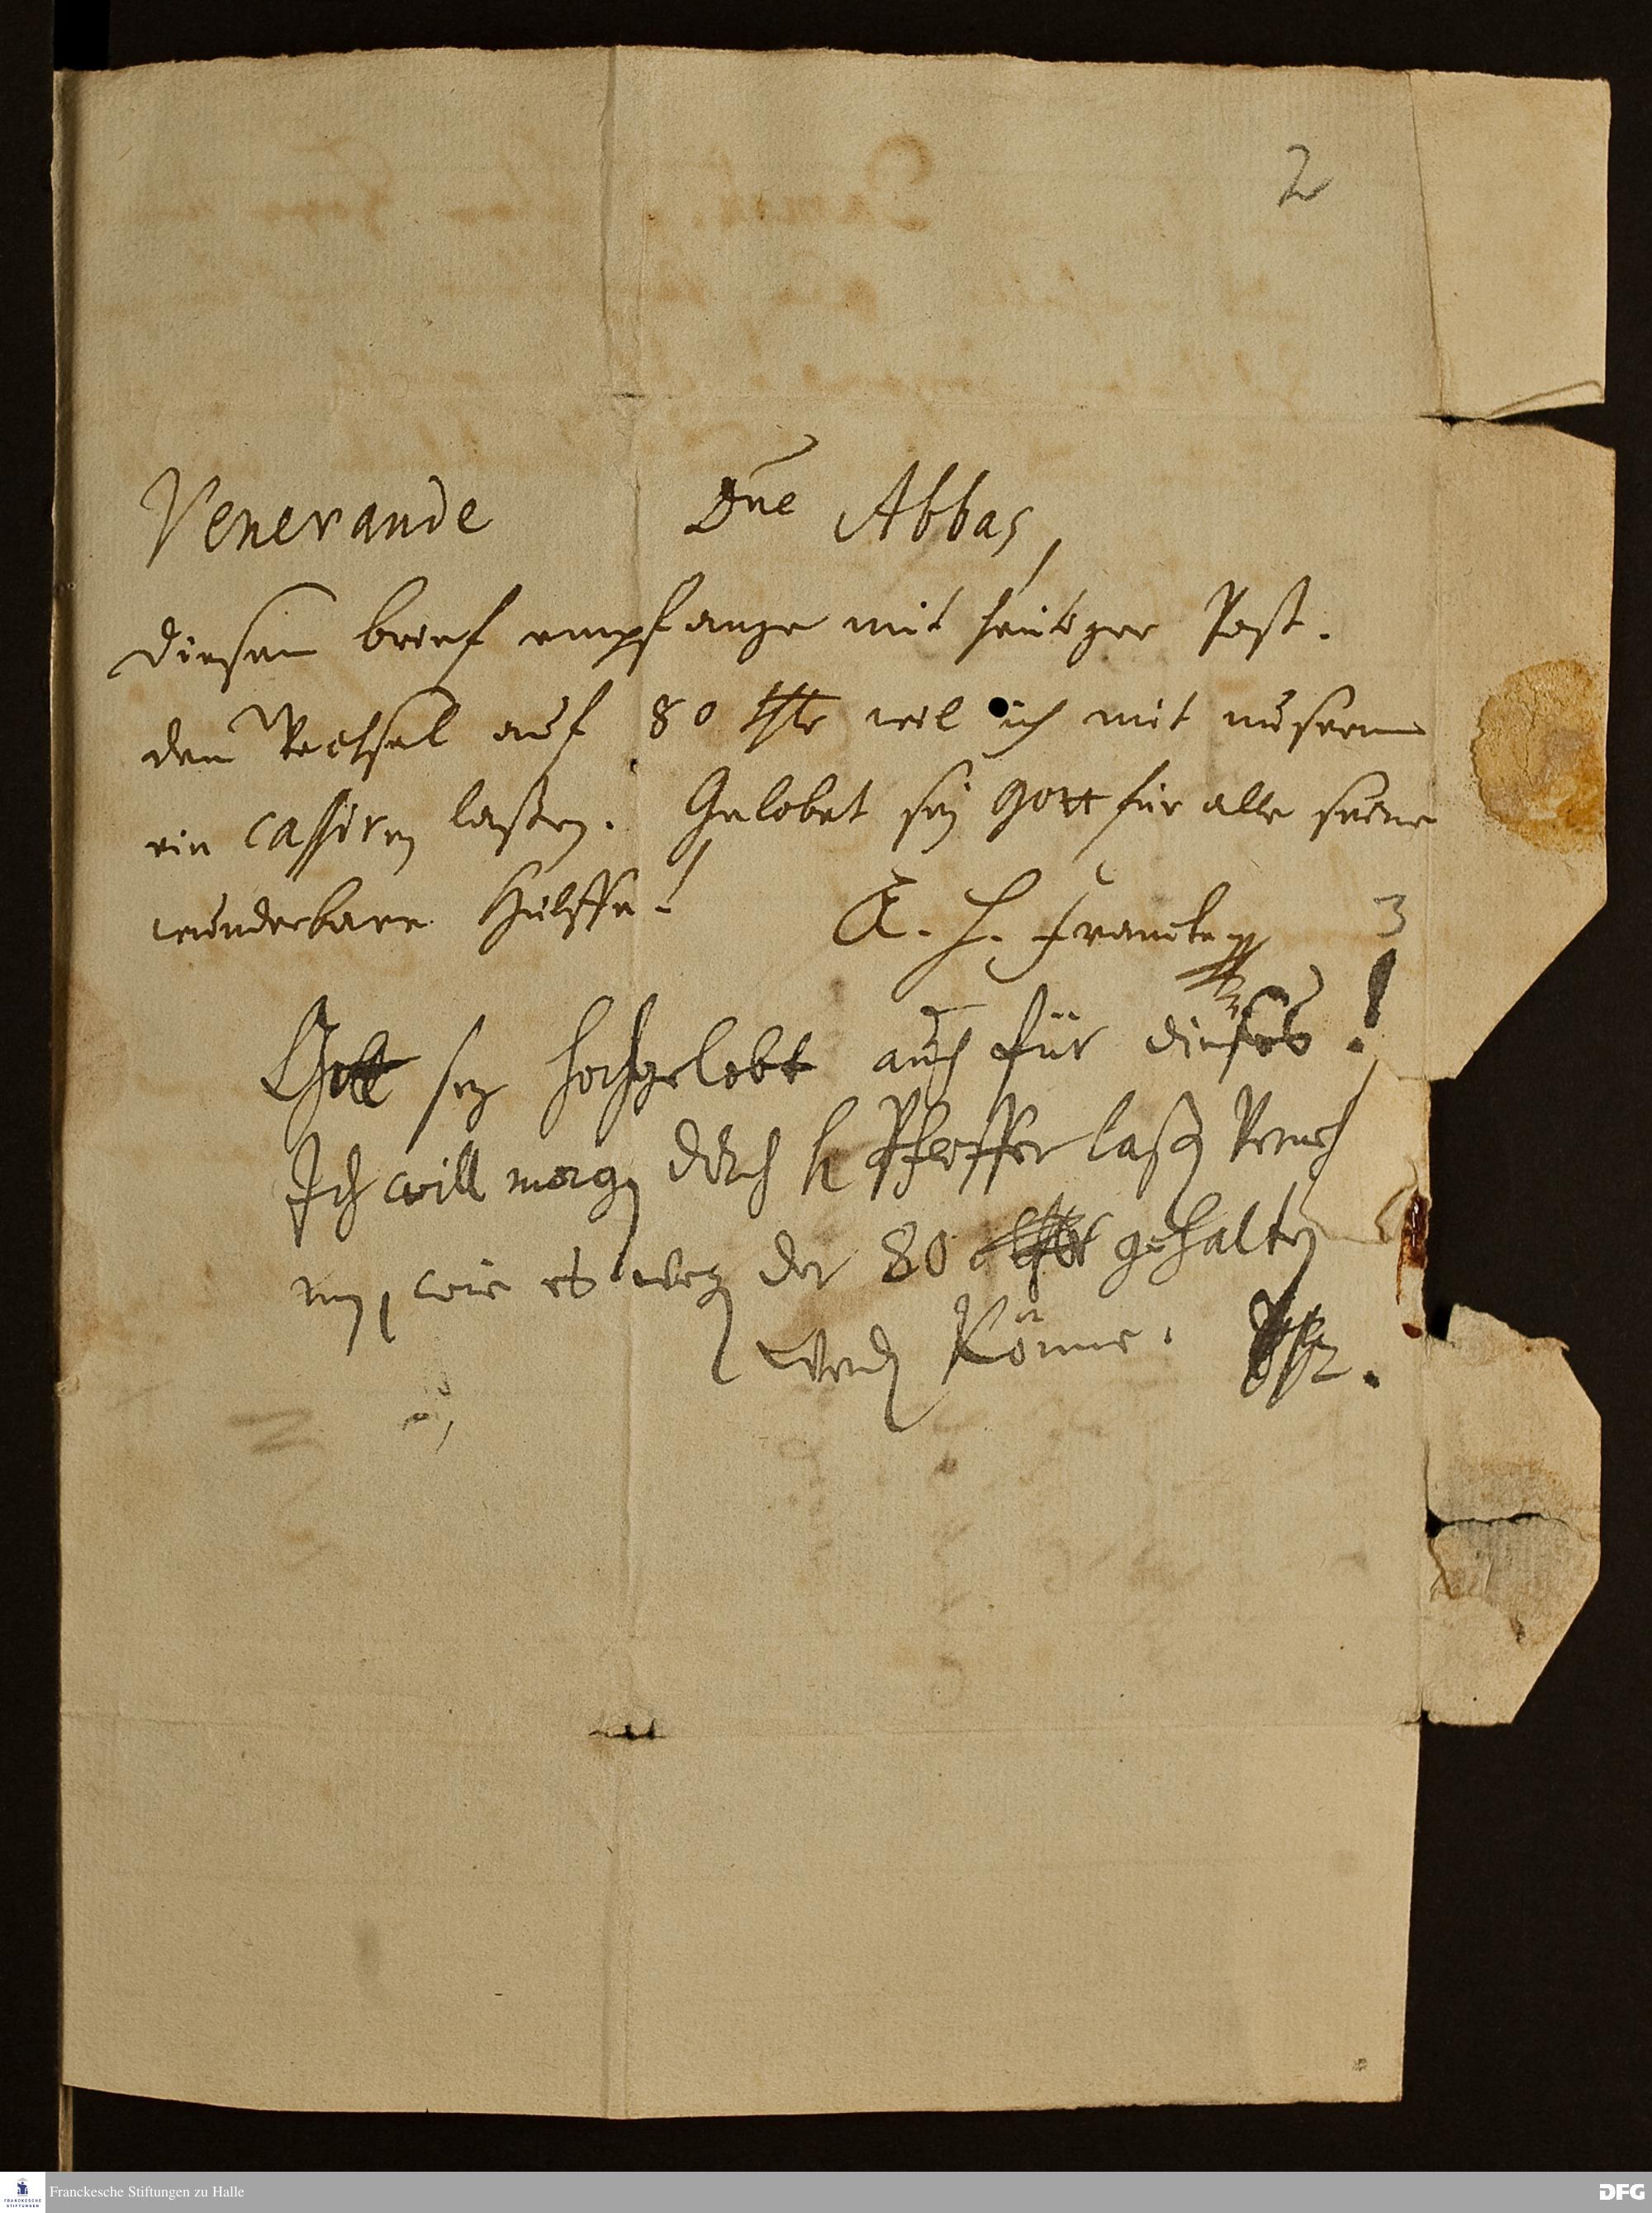 2
Venerande Dne Abbas,
diesen brief empfange mit heutiger Post.
den Wechsel auf 80 thlr wil ich mit unserm
ein cassiren laßen. Gelobet sey Gott für alle seine
wunderbare Hülffe!
A. H. Francke
3
Gott sey hochgelobt auch für dieses!
Ich will morgen durch H Pfeiffer laßen verneh
men, wie es wegen der 80 thlr gehalten
werden könne.
Franckesche Stiftungen zu Halle
DFG